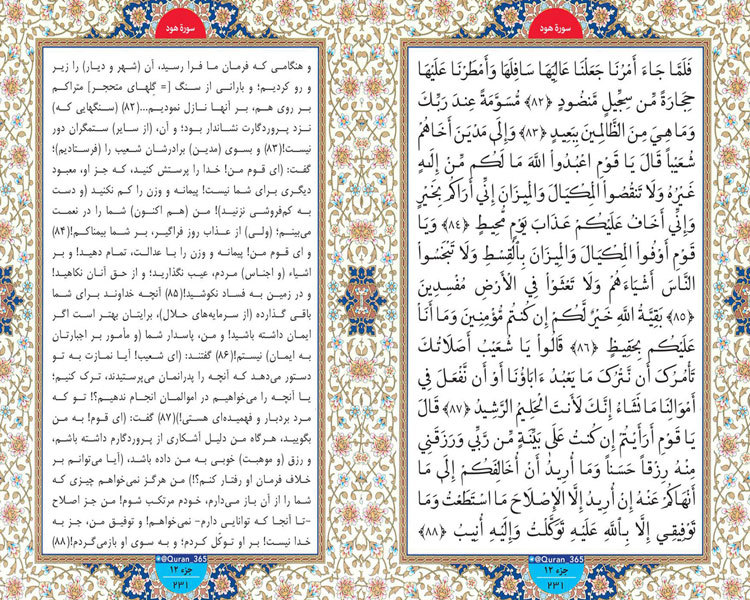 سورهٔ هود
فَلَمَّا جَاءَ أَمْرُنَا جَعَلْنَا عَالِيَهَا سَافِلَهَا وَأَمْطَرْنَا عَلَيْهَا
حِجَارَةً مِّن سِجِّيلٍ مَّنضُودٍ ﴿٨٢﴾ مُّسَوَّمَةً عِندَ رَبِّكَ
وَمَا هِيَ مِنَ الظَّالِمِينَ بِبَعِيدٍ ﴿٨٣﴾ وَإِلَى مَدْيَنَ أَخَاهُمْ
شُعَيْباً قَالَ يَا قَوْمِ اعْبُدُواْ اللّهَ مَا لَكُم مِّنْ إِلَهٍ
غَيْرُهُ وَلَا تَنقُصُواْ الْمِكْيَالَ وَالْمِيزَانَ إِنِّي أَرَاكُم بِخَيْرٍ
وَإِنِّي أَخَافُ عَلَيْكُمْ عَذَابَ يَوْمٍ مُّحِيطٍ ﴿٨٤﴾ وَيَا
قَوْمِ أَوْفُواْ الْمِكْيَالَ وَالْمِيزَانَ بِالْقِسْطِ وَلَا تَبْخَسُواْ
النَّاسَ أَشْيَاءَهُمْ وَلَا تَعْثَوْاْ فِي الْأَرْضِ مُفْسِدِينَ
﴿٨٥﴾ بَقِيَّةُ اللّهِ خَيْرٌ لَّكُمْ إِن كُنتُم مُّؤْمِنِينَ وَمَا أَنَاْ
عَلَيْكُم بِحَفِيظٍ ﴿٨٦﴾ قَالُواْ يَا شُعَيْبُ أَصَلَاتُكَ
تَأْمُرُكَ أَن نَّتْرُكَ مَا يَعْبُدُ ءَابَاؤُنَا أَوْ أَن نَّفْعَلَ فِي
أَمْوَالِنَا مَا نَشَاءُ إِنَّكَ لَأَنتَ الْحَلِيمُ الرَّشِيدُ ﴿٨٧﴾ قَالَ
يَا قَوْمِ أَرَأَيْتُمْ إِن كُنتُ عَلَى بَيِّنَةٍ مِّن رَّبِّي وَرَزَقَنِي
مِنْهُ رِزْقاً حَسَناً وَمَا أُرِيدُ أَنْ أُخَالِفَكُمْ إِلَى مَا
أَنْهَاكُمْ عَنْهُ إِنْ أُرِيدُ إِلَّا الْإِصْلَاحَ مَا اسْتَطَعْتُ وَمَا
تَوْفِيقِي إِلَّا بِاللّهِ عَلَيْهِ تَوَكَّلْتُ وَإِلَيْهِ أُنِيبُ ﴿٨٨﴾
@Quran_365
جزء ۱۲
۲۳۱
سورهٔ هود
و هنگامی که فرمان ما فرا رسید، آن (شهر و دیار) را زیر
و رو کردیم؛ و بارانی از سنگ [= گِلهای متحجر] متراکم
بر روی هم، بر آنها نازل نمودیم...(۸۲) (سنگهایی که)
نزد پروردگارت نشاندار بود؛ و آن، (از سایر) ستمگران دور
نیست!(۸۳) و بسوی (مدین) برادرشان شعیب را (فرستادیم)؛
گفت: (ای قوم من! خدا را پرستش کنید، که جز او، معبود
دیگری برای شما نیست! پیمانه و وزن را کم نکنید (و دست
به کم‌فروشی نزنید)! من (هم اکنون) شما را در نعمت
می‌بینم؛ (ولی) از عذاب روز فراگیر، بر شما بیمناکم!(۸۴)
و ای قوم من! پیمانه و وزن را با عدالت، تمام دهید! و بر
اشیاء (و اجناس) مردم، عیب نگذارید؛ و از حق آنان نکاهید!
و در زمین به فساد نکوشید!(۸۵) آنچه خداوند برای شما
باقی گذارده (از سرمایه‌های حلال)، برایتان بهتر است اگر
ایمان داشته باشید! و من، پاسدار شما (و مأمور بر اجبارتان
به ایمان) نیستم!(۸۶) گفتند: (ای شعیب! آیا نمازت به تو
دستور می‌دهد که آنچه را پدرانمان می‌پرستیدند، ترک کنیم؛
یا آنچه را می‌خواهیم در اموالمان انجام ندهیم؟! تو که
مرد بردبار و فهمیده‌ای هستی!)(۸۷) گفت: (ای قوم! به من
بگویید، هرگاه من دلیل آشکاری از پروردگارم داشته باشم،
و رزق (و موهبت) خوبی به من داده باشد، (آیا می‌توانم بر
خلاف فرمان او رفتار کنم؟!) من هرگز نمی‌خواهم چیزی که
شما را از آن باز می‌دارم، خودم مرتکب شوم! من جز اصلاح
-تا آنجا که توانایی دارم- نمی‌خواهم! و توفیق من، جز به
خدا نیست! بر او توکّل کردم؛ و به سوی او بازمی‌گردم!(۸۸)
@Quran_365
جزء ۱۲
۲۳۱